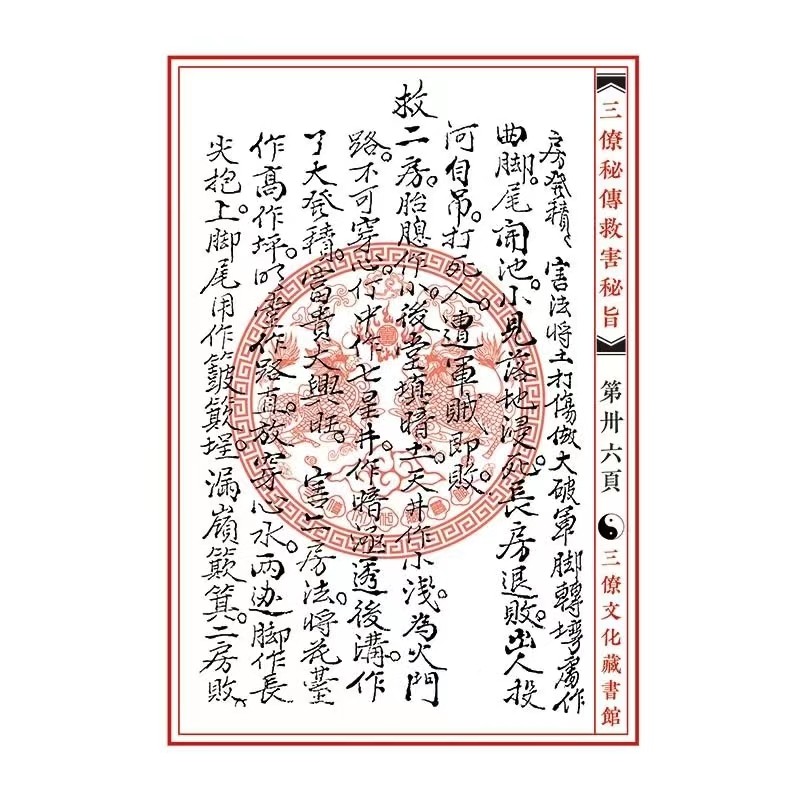 三僚秘傳救害秘旨
第卅六頁
三僚文化藏書館
房發積、害法將土打傷做大破軍脚轉塆處作
曲脚尾開池。小兒落地浸死。長房退敗。出人投
河自吊。打死人。遭軍賊即敗。
救二房胎腮作小後堂填暗土。天井作小淺為火門
路。不可穿心。行中作七星井。作暗涵透後溝。作
了大發積。富貴大興旺。 害二房法將花臺
作高作坪。明堂作路直放穿心水。兩边脚作長
尖抱上。脚尾用作簸欺埕漏嶺欺箕。二房敗。